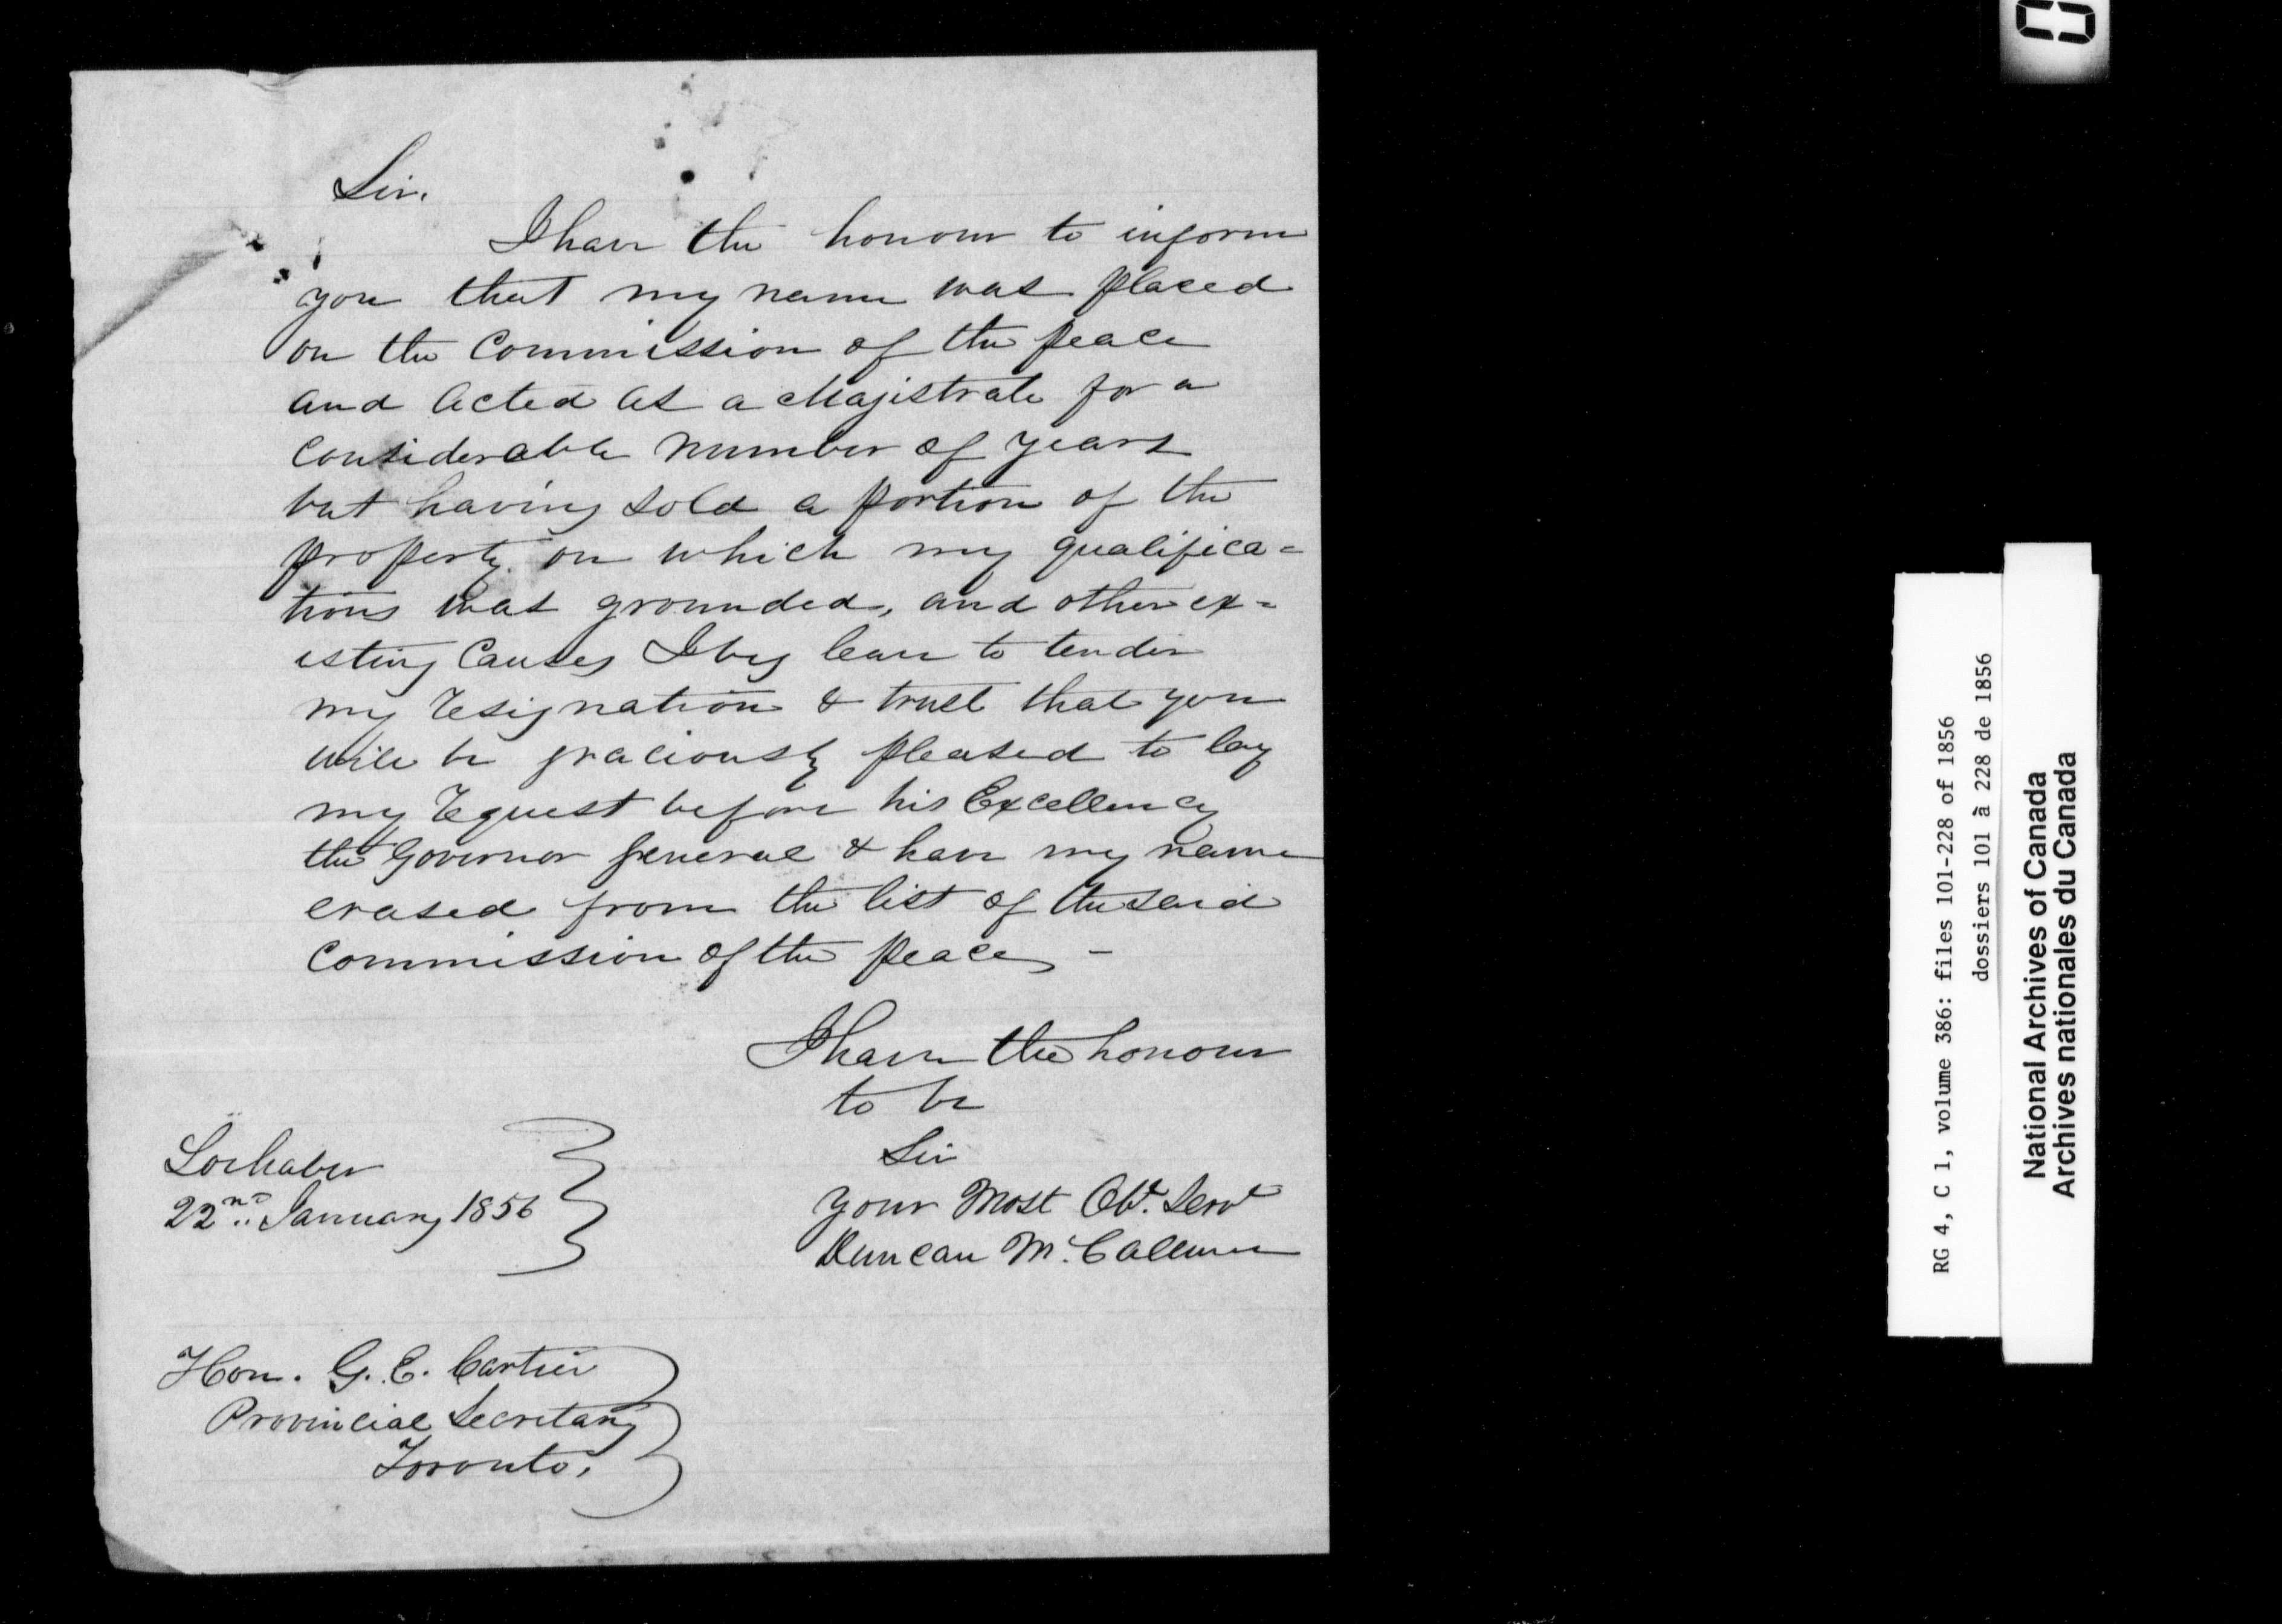 Sir.
I have the honour to inform
you that my name was placed
on the Commission of the peace
and acted as a Magistrate for a
Considerable Number of years
but having sold a portion of the
property on which my qualifica=
tions was grounded, and other ex=
isting Causes I beg leave to tender
my Resignation & trust that you
will be graciously pleased to lay
my Request before his Excellency
the Governor General & have my name
erased from the list of the said
Commission of the peace –
I have the honour
to be
Sir
Your Most Obt. Servt
Duncan Mc.Callum
Lochaber
22nd January 1856
Hon. G. E. Cartier
Provincial Secretary
Toronto.
RG 4, C 1, volume 386: files 101-228 of 1856
dossiers 101 à 228 de 1856
National Archives of Canada
Archives nationales du Canada